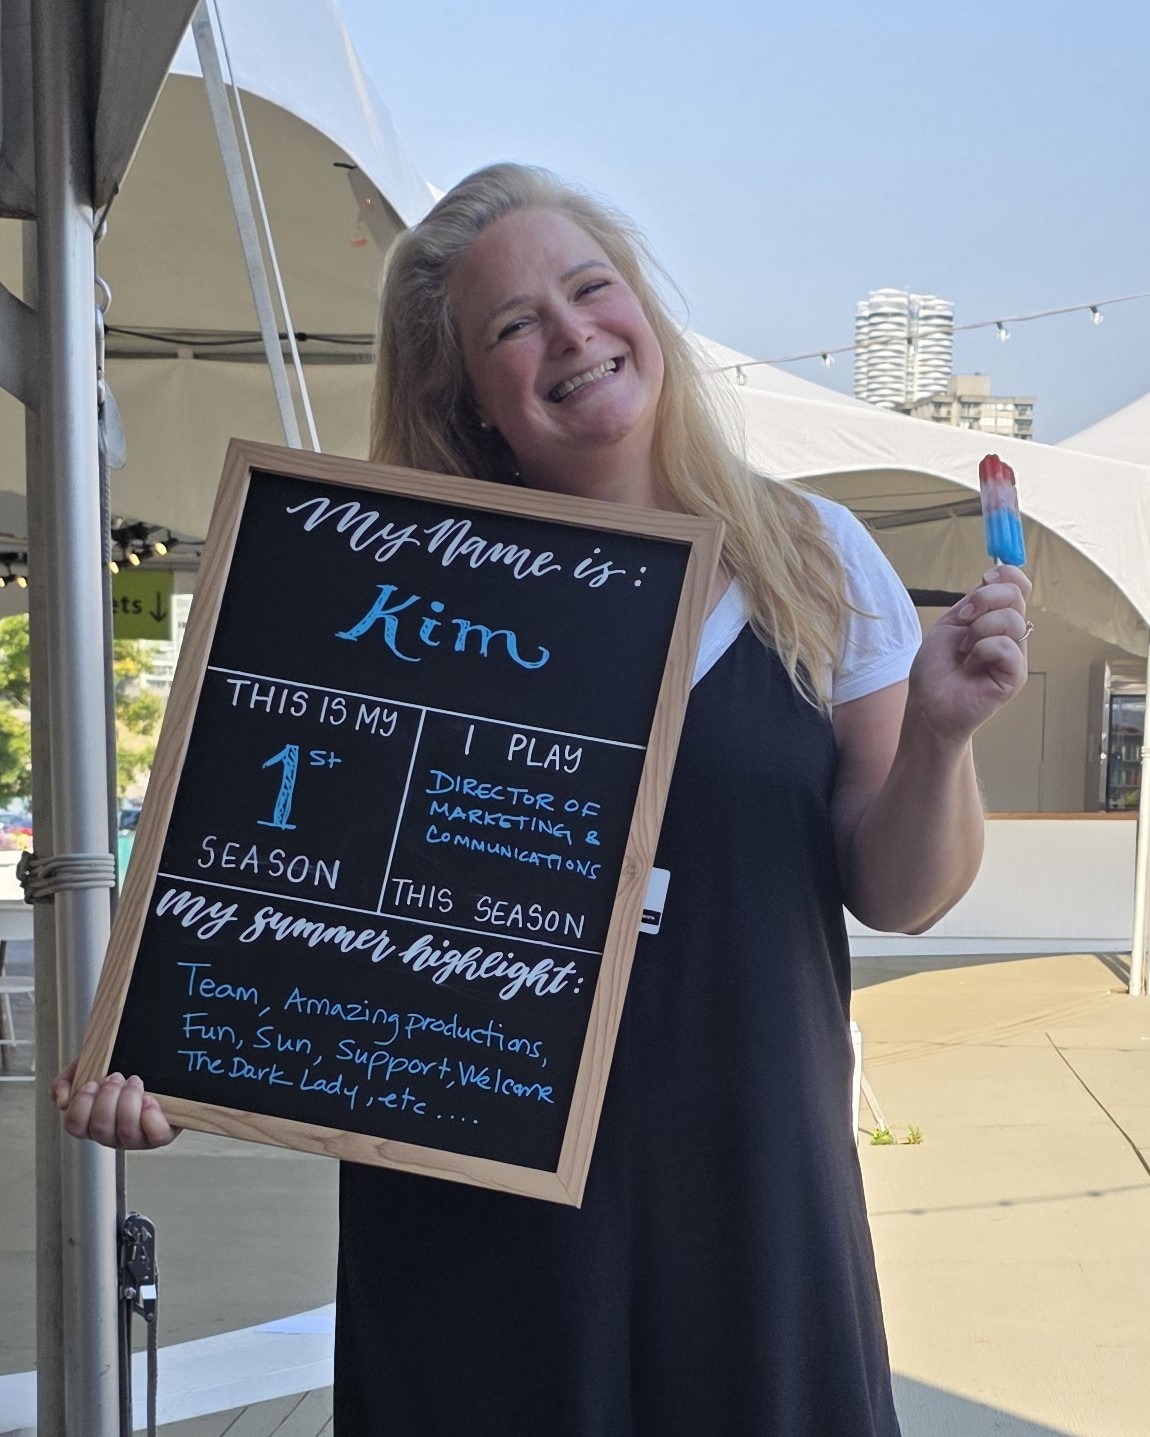 My Name is:
Kim
THIS IS MY
1st
SEASON
I PLAY
DIRECTOR OF
MARKETING &
COMMUNICATIONS
THIS SEASON
My summer highlight:
Team, Amazing productions,
Fun, Sun, Support, Welcome
The Dark Lady, etc....